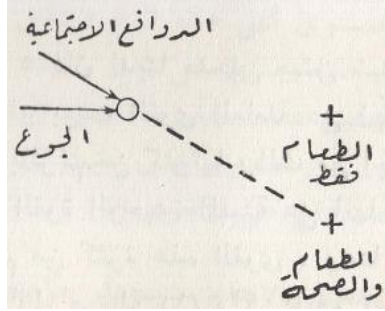 الدوافع الاجتماعية
الجوع
الطعام
فقط
الطعام
والصحة